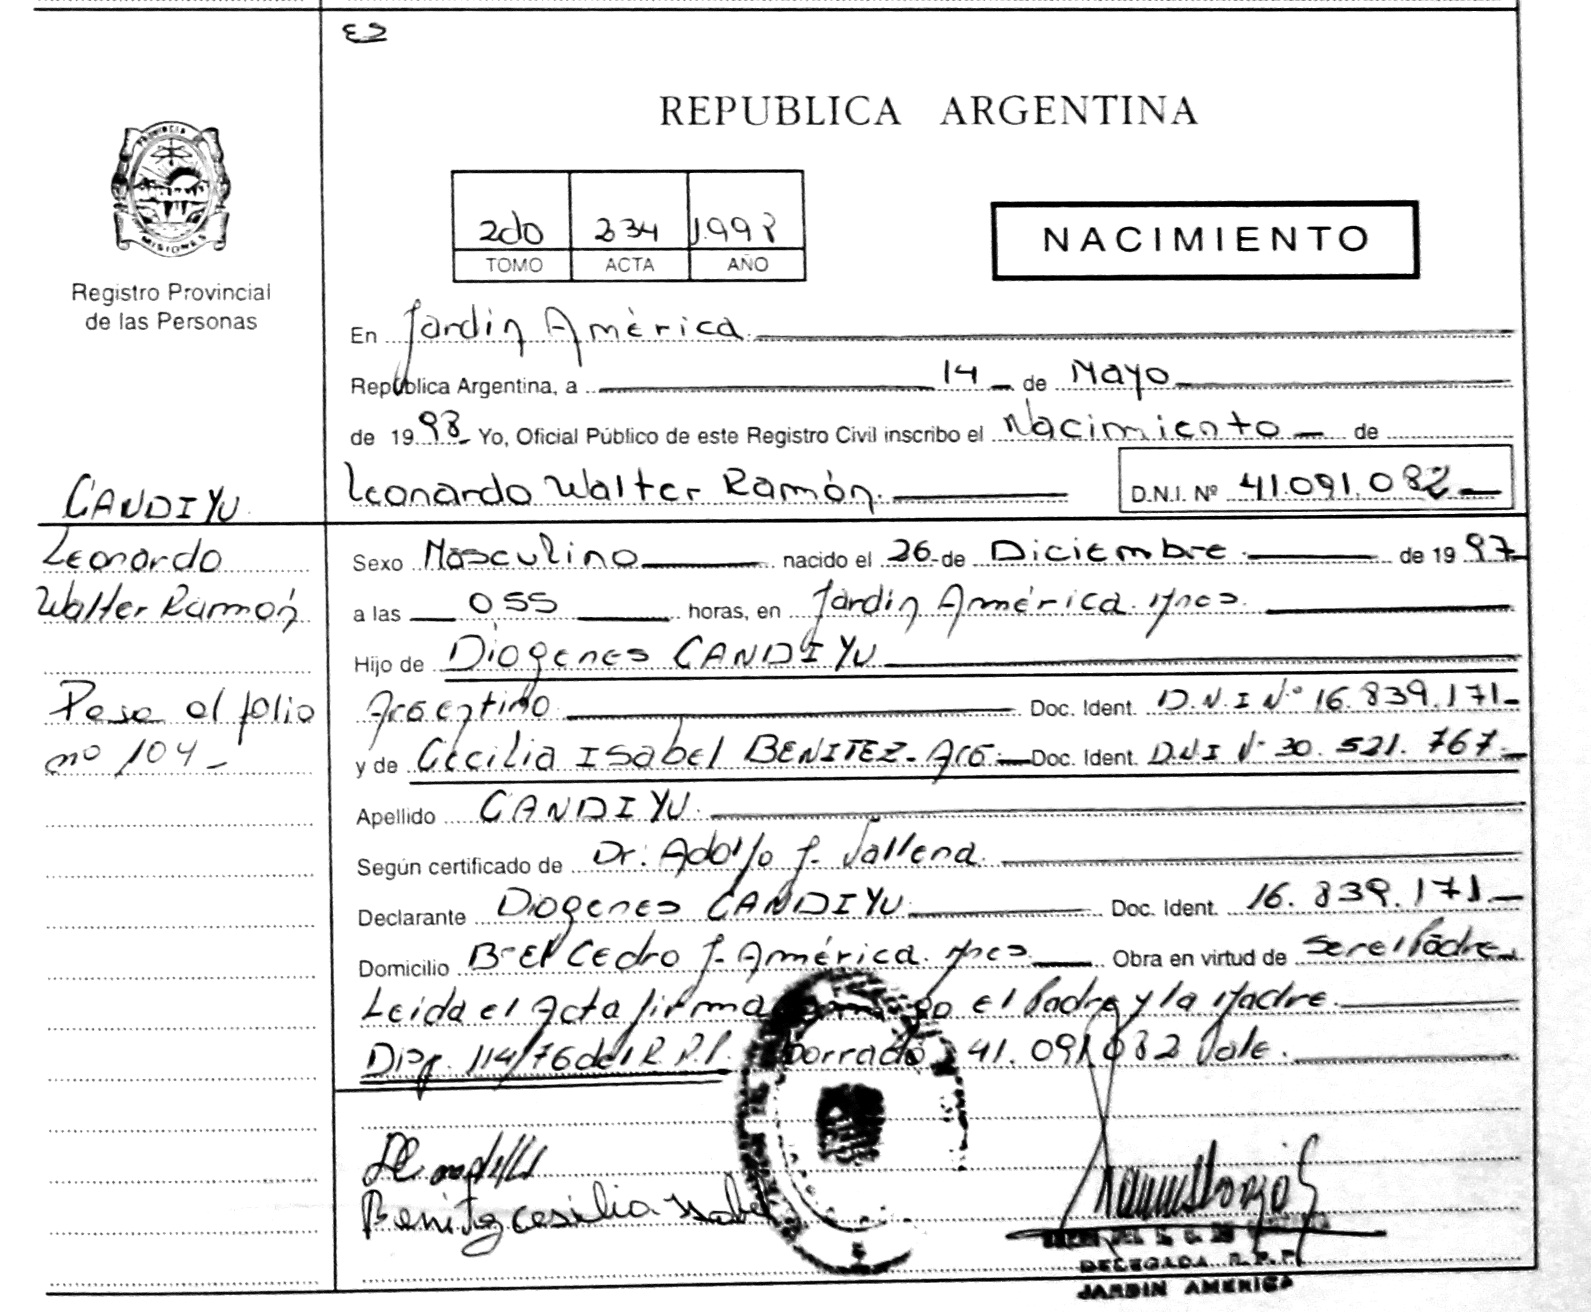 REPUBLICA ARGENTINA
PROVINCIA
MISIONES
Registro Provincial
de las Personas
2do 234 1.998
TOMO ACTA AÑO
NACIMIENTO
En Jardin América.
República Argentina, a 14 de Mayo
de 19 98 Yo, Oficial Público de este Registro Civil inscribo el Nacimiento de
Leonardo Walter Ramón. D.N.I. Nº 41.091.082
CANDIYU.
Leonardo
Walter Ramón
Pasa al folio
nº 104
Sexo Masculino nacido el 26 de Diciembre de 19 97
a las 0 55 horas, en Jardin América. Mnes.
Hijo de Diogenes CANDIYU
Argentino Doc. Ident. D.N.I Nº 16.839.171
y de Cecilia Isabel BENITEZ. Arg. Doc. Ident. D.N.I Nº 30.521.767
Apellido CANDIYU.
Según certificado de Dr. Adolfo J.
Declarante Diogenes CANDIYU. Doc. Ident. 16.839.171
Domicilio Bº El Cedro J. América. Mnes Obra en virtud de ser el Padre
Leida el Acta firma el Padre y la Madre.
Disp. 114/76 del R.P.P. borrado 41.091.082 Vale.
Benitez cesilia Isabel
DELEGADA R.P.P.
JARDIN AMERICA